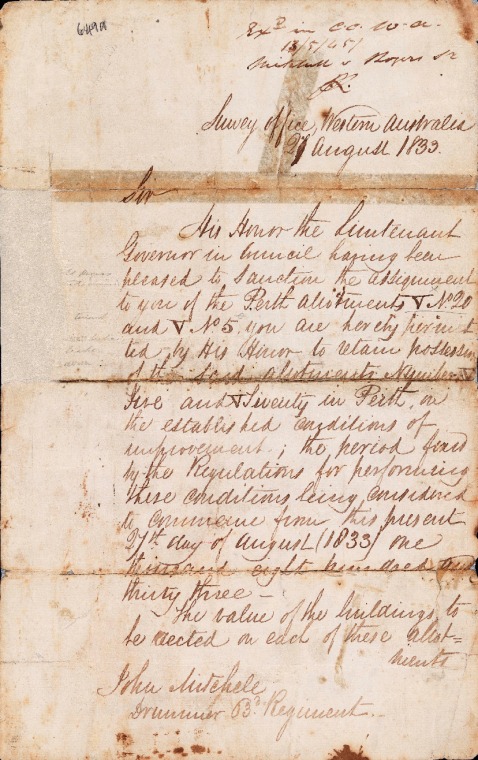 649A
Exd in CC. W.A.
13/5/65
Mitchell v Rogers
Survey office, Western Australia
27 August 1833.
Sir
His Honor the Lieutenant
Governor in Council having been
pleased to sanction the assignment
to you of the Perth allotments V No 20
and V No 5 you are hereby permit
ted by His Honor to retain possession
of the said allotments Number V
Five and V Twenty in Perth, on
the established conditions of
improvement; the period fixed
by the Regulations for performing
these conditions being considered
to commence from this present
27th day of August (1833) one
thousand eight hundred and
thirty three –
The value of the buildings to
be erected on each of these allot=
ments
John Mitchell
Drummer 63d Regiment.